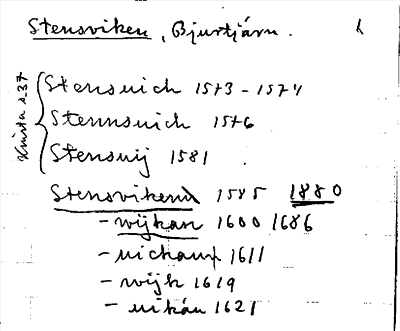 Stensviken, Bjurtjärn.
Krista s. 37
Stensuich 1573-1574
Stennsuich 1576
Stenswij 1581
Stensvikenn 1585 1880
-wijkan 1600 1686
-uichan 1611
-wijk 1619
-uikån 1621